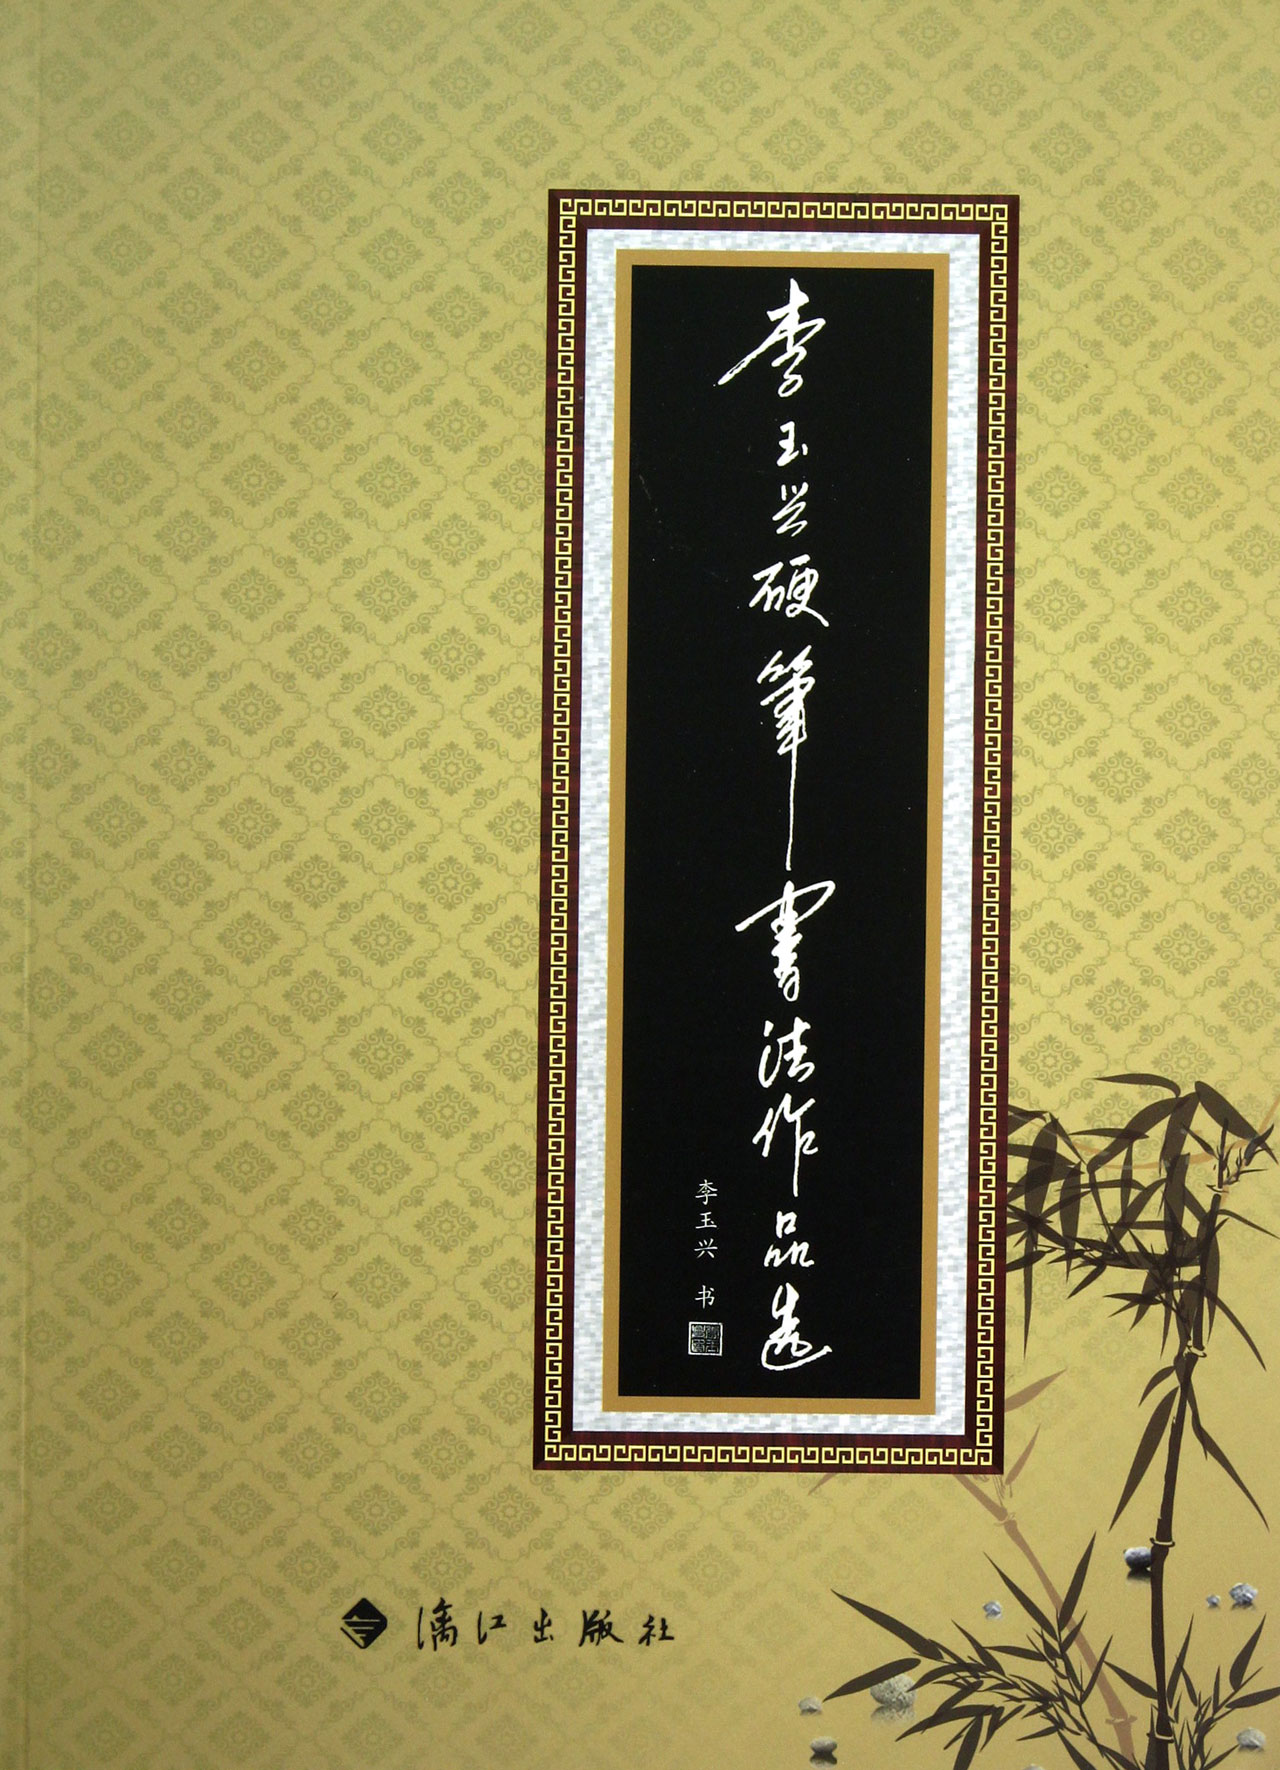 李玉兴硬筆書法作品选
李玉兴 书
漓江出版社